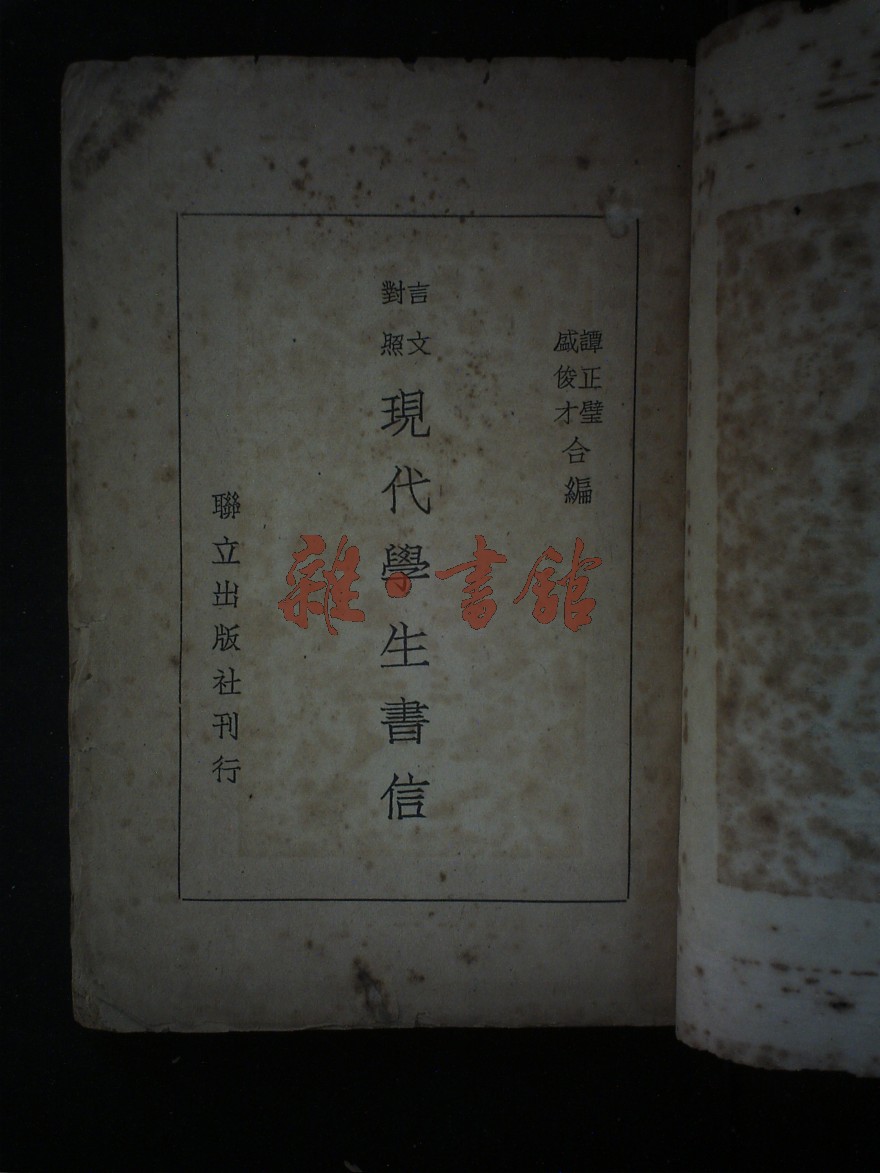 譚正璧
戚俊才
合編
言文
對照
現代學生書信
聯立出版社刊行
雜·書館